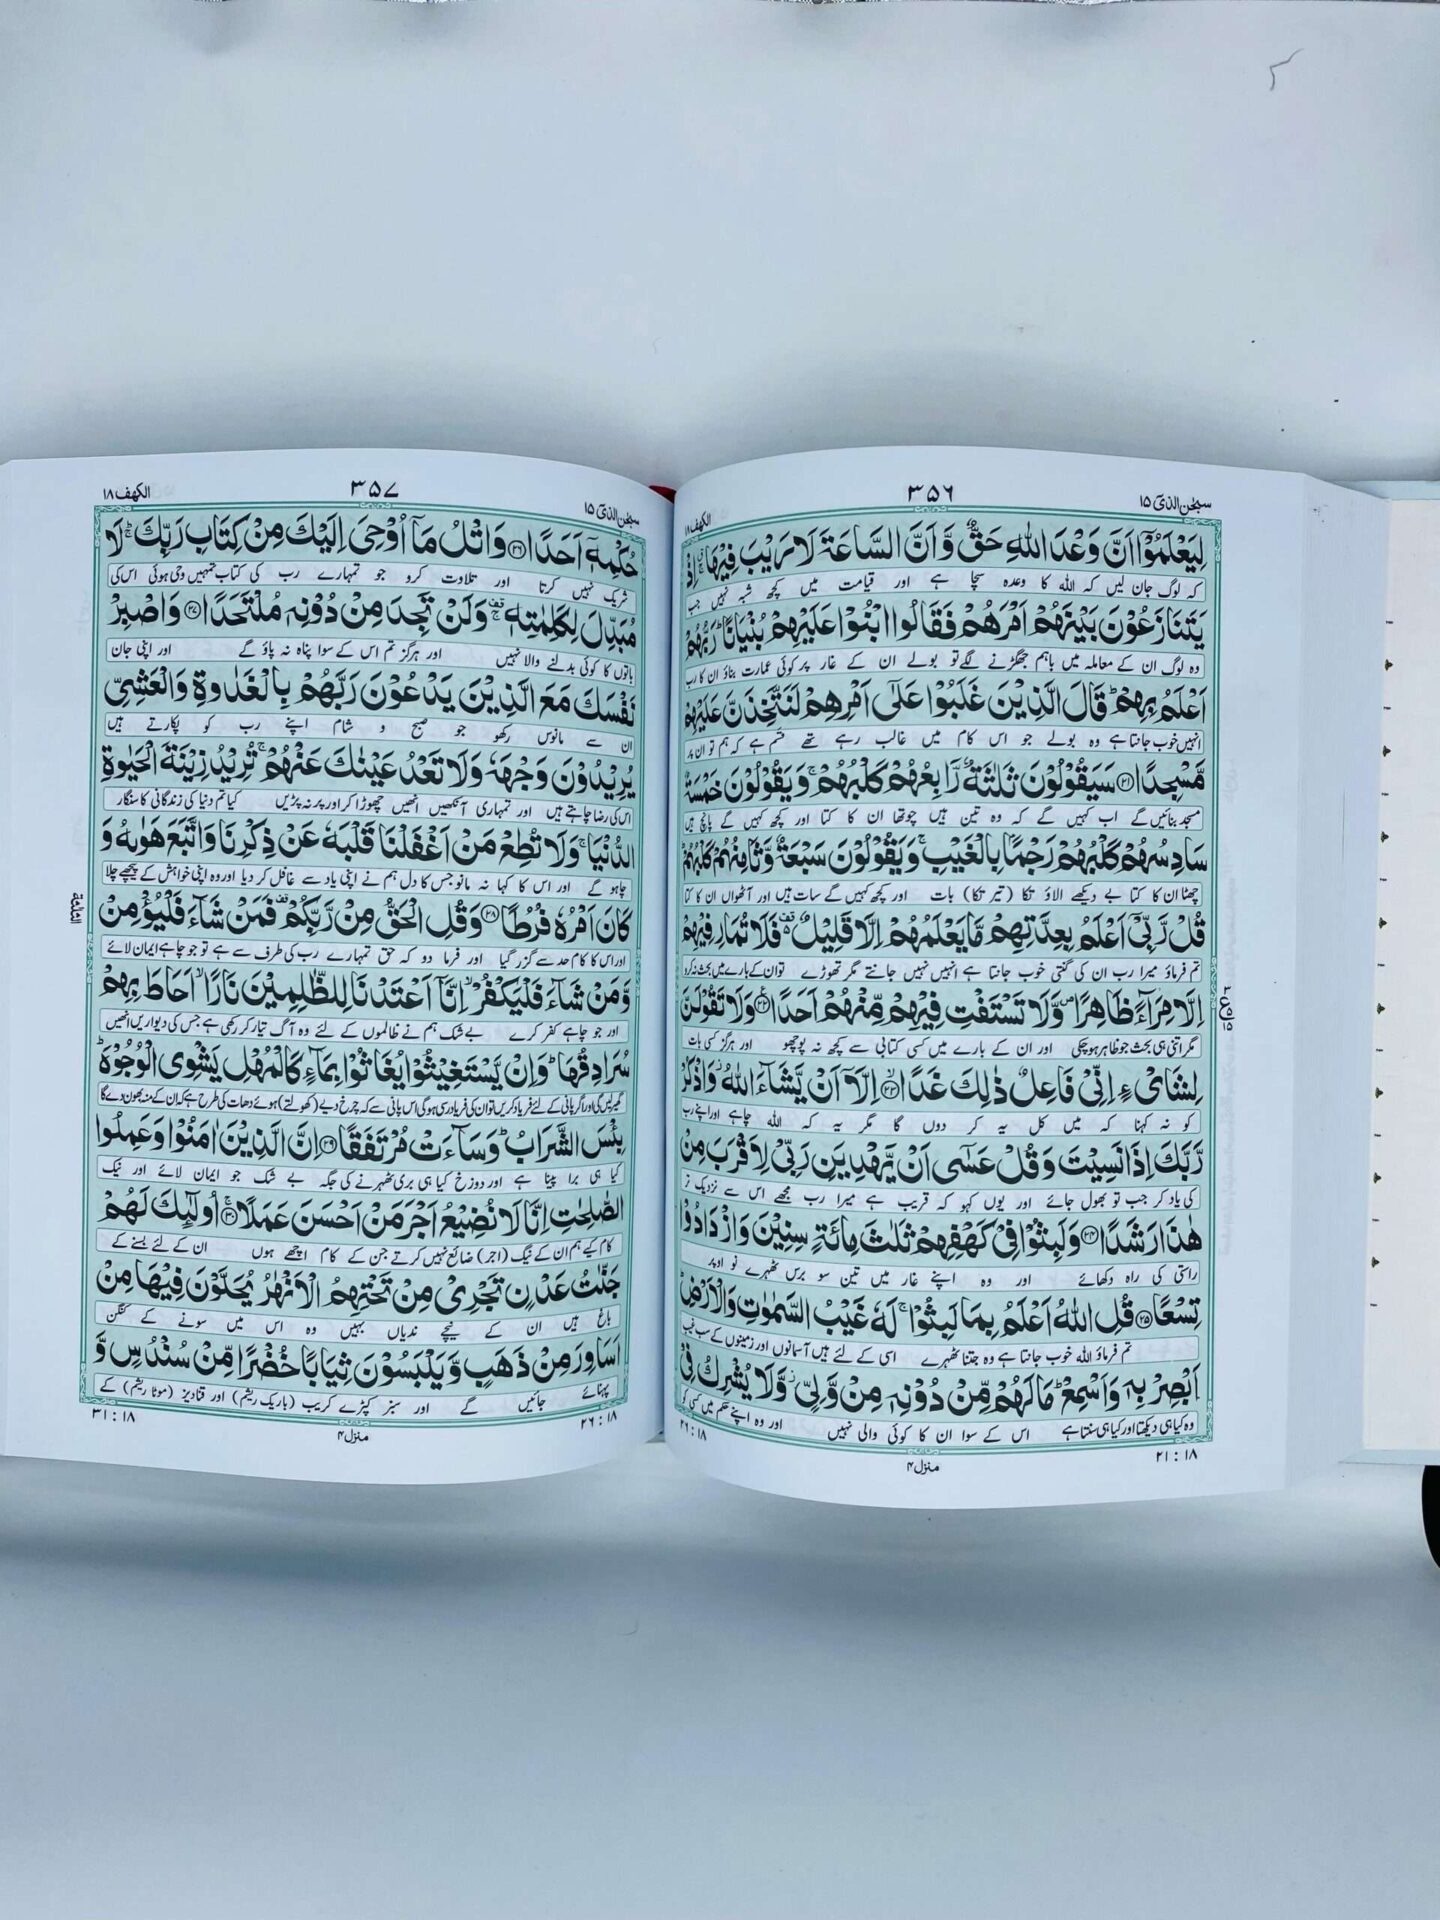 سبحٰن الذی ١٥
٣٥٦
الكهف ١٨
لِيَعْلَمُوْٓا اَنَّ وَعْدَ اللّٰهِ حَقٌّ وَّ اَنَّ السَّاعَةَ لَا رَيْبَ فِيْهَا ۚ اِذْ
کہ لوگ جان لیں کہ اللہ کا وعدہ سچا ہے اور قیامت میں کچھ شبہ نہیں جب
يَتَنَازَعُوْنَ بَيْنَهُمْ اَمْرَهُمْ فَقَالُوا ابْنُوْا عَلَيْهِمْ بُنْيَانًا ؕ رَبُّهُمْ
وہ لوگ ان کے معاملہ میں باہم جھگڑنے لگے تو بولے ان کے غار پر کوئی عمارت بناؤ ان کا رب
اَعْلَمُ بِهِمْ ؕ قَالَ الَّذِيْنَ غَلَبُوْا عَلٰٓى اَمْرِهِمْ لَنَتَّخِذَنَّ عَلَيْهِمْ
انہیں خوب جانتا ہے وہ بولے جو اس کام میں غالب رہے تھے قسم ہے کہ ہم تو ان پر
مَّسْجِدًا ﴿٢١﴾ سَيَقُوْلُوْنَ ثَلٰثَةٌ رَّابِعُهُمْ كَلْبُهُمْ ۚ وَيَقُوْلُوْنَ خَمْسَةٌ
مسجد بنائیں گے اب کہیں گے کہ وہ تین ہیں چوتھا ان کا کتا اور کچھ کہیں گے پانچ ہیں
سَادِسُهُمْ كَلْبُهُمْ رَجْمًا بِالْغَيْبِ ۚ وَيَقُوْلُوْنَ سَبْعَةٌ وَّثَامِنُهُمْ كَلْبُهُمْ
چھٹا ان کا کتا بے دیکھے الاؤ تکا (تیر تکا) بات اور کچھ کہیں گے سات ہیں اور آٹھواں ان کا کتا
قُلْ رَّبِّيْٓ اَعْلَمُ بِعِدَّتِهِمْ مَّا يَعْلَمُهُمْ اِلَّا قَلِيْلٌ ۫ فَلَا تُمَارِ فِيْهِمْ
تم فرماؤ میرا رب ان کی گنتی خوب جانتا ہے انہیں نہیں جانتے مگر تھوڑے تو ان کے بارے میں بحث نہ کرو
اِلَّا مِرَآءً ظَاهِرًا ۪ وَّلَا تَسْتَفْتِ فِيْهِمْ مِّنْهُمْ اَحَدًا ﴿٢٢﴾ وَلَا تَقُوْلَنَّ
مگر اتنی ہی بحث جو ظاہر ہوچکی اور ان کے بارے میں کسی کتابی سے کچھ نہ پوچھو اور ہرگز کسی بات
لِشَایْءٍ اِنِّيْ فَاعِلٌ ذٰلِكَ غَدًا ﴿٢٣﴾ اِلَّآ اَنْ يَّشَآءَ اللّٰهُ ؗ وَاذْكُرْ
کو نہ کہنا کہ میں کل یہ کر دوں گا مگر یہ کہ اللہ چاہے اور اپنے رب
رَّبَّكَ اِذَا نَسِيْتَ وَقُلْ عَسٰٓى اَنْ يَّهْدِيَنِ رَبِّيْ لِاَقْرَبَ مِنْ
کی یاد کر جب تو بھول جائے اور یوں کہو کہ قریب ہے میرا رب مجھے اس سے نزدیک تر
هٰذَا رَشَدًا ﴿٢٤﴾ وَلَبِثُوْا فِيْ كَهْفِهِمْ ثَلٰثَ مِائَةٍ سِنِيْنَ وَازْدَادُوْا
راستی کی راہ دکھائے اور وہ اپنے غار میں تین سو برس ٹھہرے نو اوپر
تِسْعًا ﴿٢٥﴾ قُلِ اللّٰهُ اَعْلَمُ بِمَا لَبِثُوْا ۚ لَهٗ غَيْبُ السَّمٰوٰتِ وَالْاَرْضِ ؕ
تم فرماؤ اللہ خوب جانتا ہے وہ جتنا ٹھہرے اسی کے لئے ہیں آسمانوں اور زمینوں کے سب غیب
اَبْصِرْ بِهٖ وَاَسْمِعْ ؕ مَا لَهُمْ مِّنْ دُوْنِهٖ مِنْ وَّلِيٍّ ؗ وَّلَا يُشْرِكُ فِيْ
وہ کیا ہی دیکھتا اور کیا ہی سنتا ہے اس کے سوا ان کا کوئی والی نہیں اور وہ اپنے حکم میں کسی کو
٢١ : ١٨
منزل ٤
٢٦ : ١٨
سبحٰن الذی ١٥
٣٥٧
الكهف ١٨
حُكْمِهٖٓ اَحَدًا ﴿٢٦﴾ وَاتْلُ مَآ اُوْحِيَ اِلَيْكَ مِنْ كِتَابِ رَبِّكَ ؕ لَا
شریک نہیں کرتا اور تلاوت کرو جو تمہارے رب کی کتاب تمہیں وحی ہوئی اس کی
مُبَدِّلَ لِكَلِمٰتِهٖ ۫ وَلَنْ تَجِدَ مِنْ دُوْنِهٖ مُلْتَحَدًا ﴿٢٧﴾ وَاصْبِرْ
باتوں کا کوئی بدلنے والا نہیں اور ہرگز تم اس کے سوا پناہ نہ پاؤ گے اور اپنی جان
نَفْسَكَ مَعَ الَّذِيْنَ يَدْعُوْنَ رَبَّهُمْ بِالْغَدٰوةِ وَالْعَشِيِّ
ان سے مانوس رکھو جو صبح و شام اپنے رب کو پکارتے ہیں
يُرِيْدُوْنَ وَجْهَهٗ وَلَا تَعْدُ عَيْنٰكَ عَنْهُمْ ۚ تُرِيْدُ زِيْنَةَ الْحَيٰوةِ
اس کی رضا چاہتے ہیں اور تمہاری آنکھیں انھیں چھوڑ کر اور پر نہ پڑیں کیا تم دنیا کی زندگانی کا سنگار
الدُّنْيَا ۚ وَلَا تُطِعْ مَنْ اَغْفَلْنَا قَلْبَهٗ عَنْ ذِكْرِنَا وَاتَّبَعَ هَوٰىهُ وَ
چاہو گے اور اس کا کہا نہ مانو جس کا دل ہم نے اپنی یاد سے غافل کر دیا اور وہ اپنی خواہش کے پیچھے چلا
كَانَ اَمْرُهٗ فُرُطًا ﴿٢٨﴾ وَقُلِ الْحَقُّ مِنْ رَّبِّكُمْ ۫ فَمَنْ شَآءَ فَلْيُؤْمِنْ
اور اس کا کام حد سے گزر گیا اور فرما دو کہ حق تمہارے رب کی طرف سے ہے تو جو چاہے ایمان لائے
وَّمَنْ شَآءَ فَلْيَكْفُرْ ۙ اِنَّآ اَعْتَدْنَا لِلظّٰلِمِيْنَ نَارًا ۙ اَحَاطَ بِهِمْ
اور جو چاہے کفر کرے بے شک ہم نے ظالموں کے لئے وہ آگ تیار کر رکھی ہے جس کی دیواریں انھیں
سُرَادِقُهَا ؕ وَاِنْ يَّسْتَغِيْثُوْا يُغَاثُوْا بِمَآءٍ كَالْمُهْلِ يَشْوِي الْوُجُوْهَ ؕ
گھیر لیں گی اور اگر پانی کے لئے فریاد کریں تو ان کی فریاد رسی ہوگی اس پانی سے کہ چرخ دیے (کھولتے) ہوئے دھات کی طرح ہے کہ ان کے منہ بھون دے گا
بِئْسَ الشَّرَابُ ؕ وَسَآءَتْ مُرْتَفَقًا ﴿٢٩﴾ اِنَّ الَّذِيْنَ اٰمَنُوْا وَعَمِلُوا
کیا ہی برا پینا ہے اور دوزخ کیا ہی بری ٹھہرنے کی جگہ بے شک جو ایمان لائے اور نیک
الصّٰلِحٰتِ اِنَّا لَا نُضِيْعُ اَجْرَ مَنْ اَحْسَنَ عَمَلًا ﴿٣٠﴾ اُولٰٓئِكَ لَهُمْ
کام کیے ہم ان کے نیک (اجر) ضائع نہیں کرتے جن کے کام اچھے ہوں ان کے لئے بسنے کے
جَنّٰتُ عَدْنٍ تَجْرِيْ مِنْ تَحْتِهِمُ الْاَنْهٰرُ يُحَلَّوْنَ فِيْهَا مِنْ
باغ ہیں ان کے نیچے ندیاں بہیں وہ اس میں سونے کے کنگن
اَسَاوِرَ مِنْ ذَهَبٍ وَّيَلْبَسُوْنَ ثِيَابًا خُضْرًا مِّنْ سُنْدُسٍ وَّ
پہنائے جائیں گے اور سبز کپڑے کریب (باریک ریشم) اور قنادیز (موٹا ریشم) کے
٢٦ : ١٨
منزل ٤
٣١ : ١٨